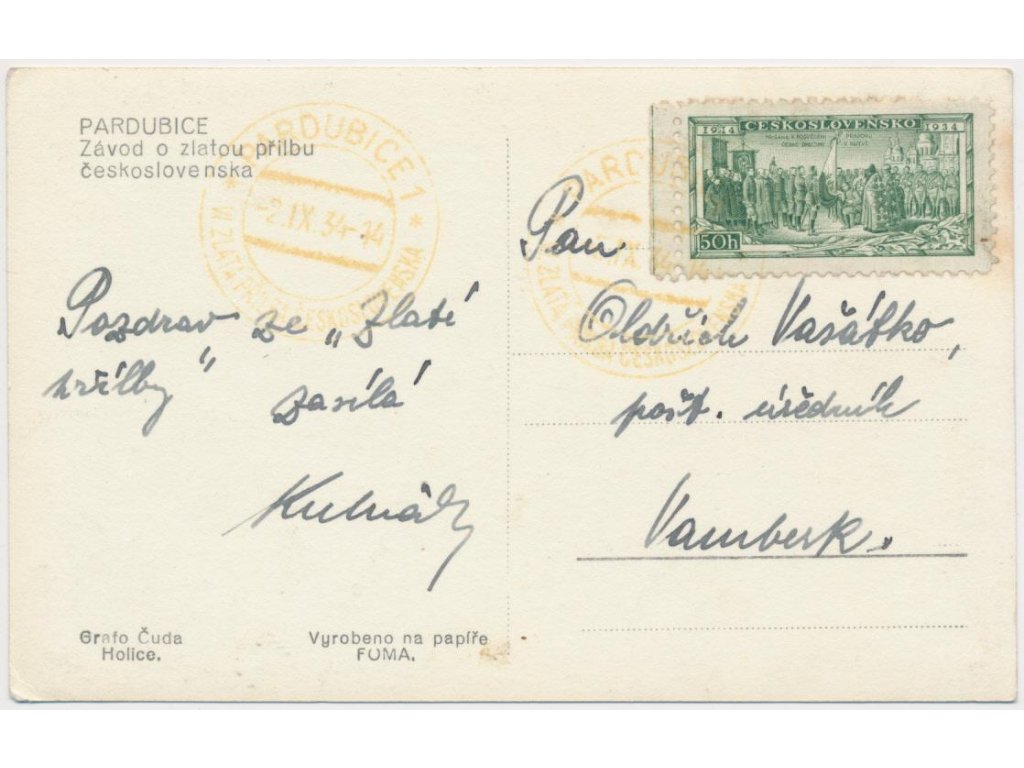 PARDUBICE
Závod o zlatou přilbu
československa
PARDUBICE 1
-2.IX.34-14
VI ZLATÁ PŘILBA ČESKOSLOVENSKA
Pozdrav ze „Zlaté
přílby"
zasílá
1914 ČESKOSLOVENSKO 1934
50h
Pan
Oldřich Vašátko,
pošt. úředník
Vamberk.
Grafo Čuda
Holice.
Vyrobeno na papíře
FOMA.